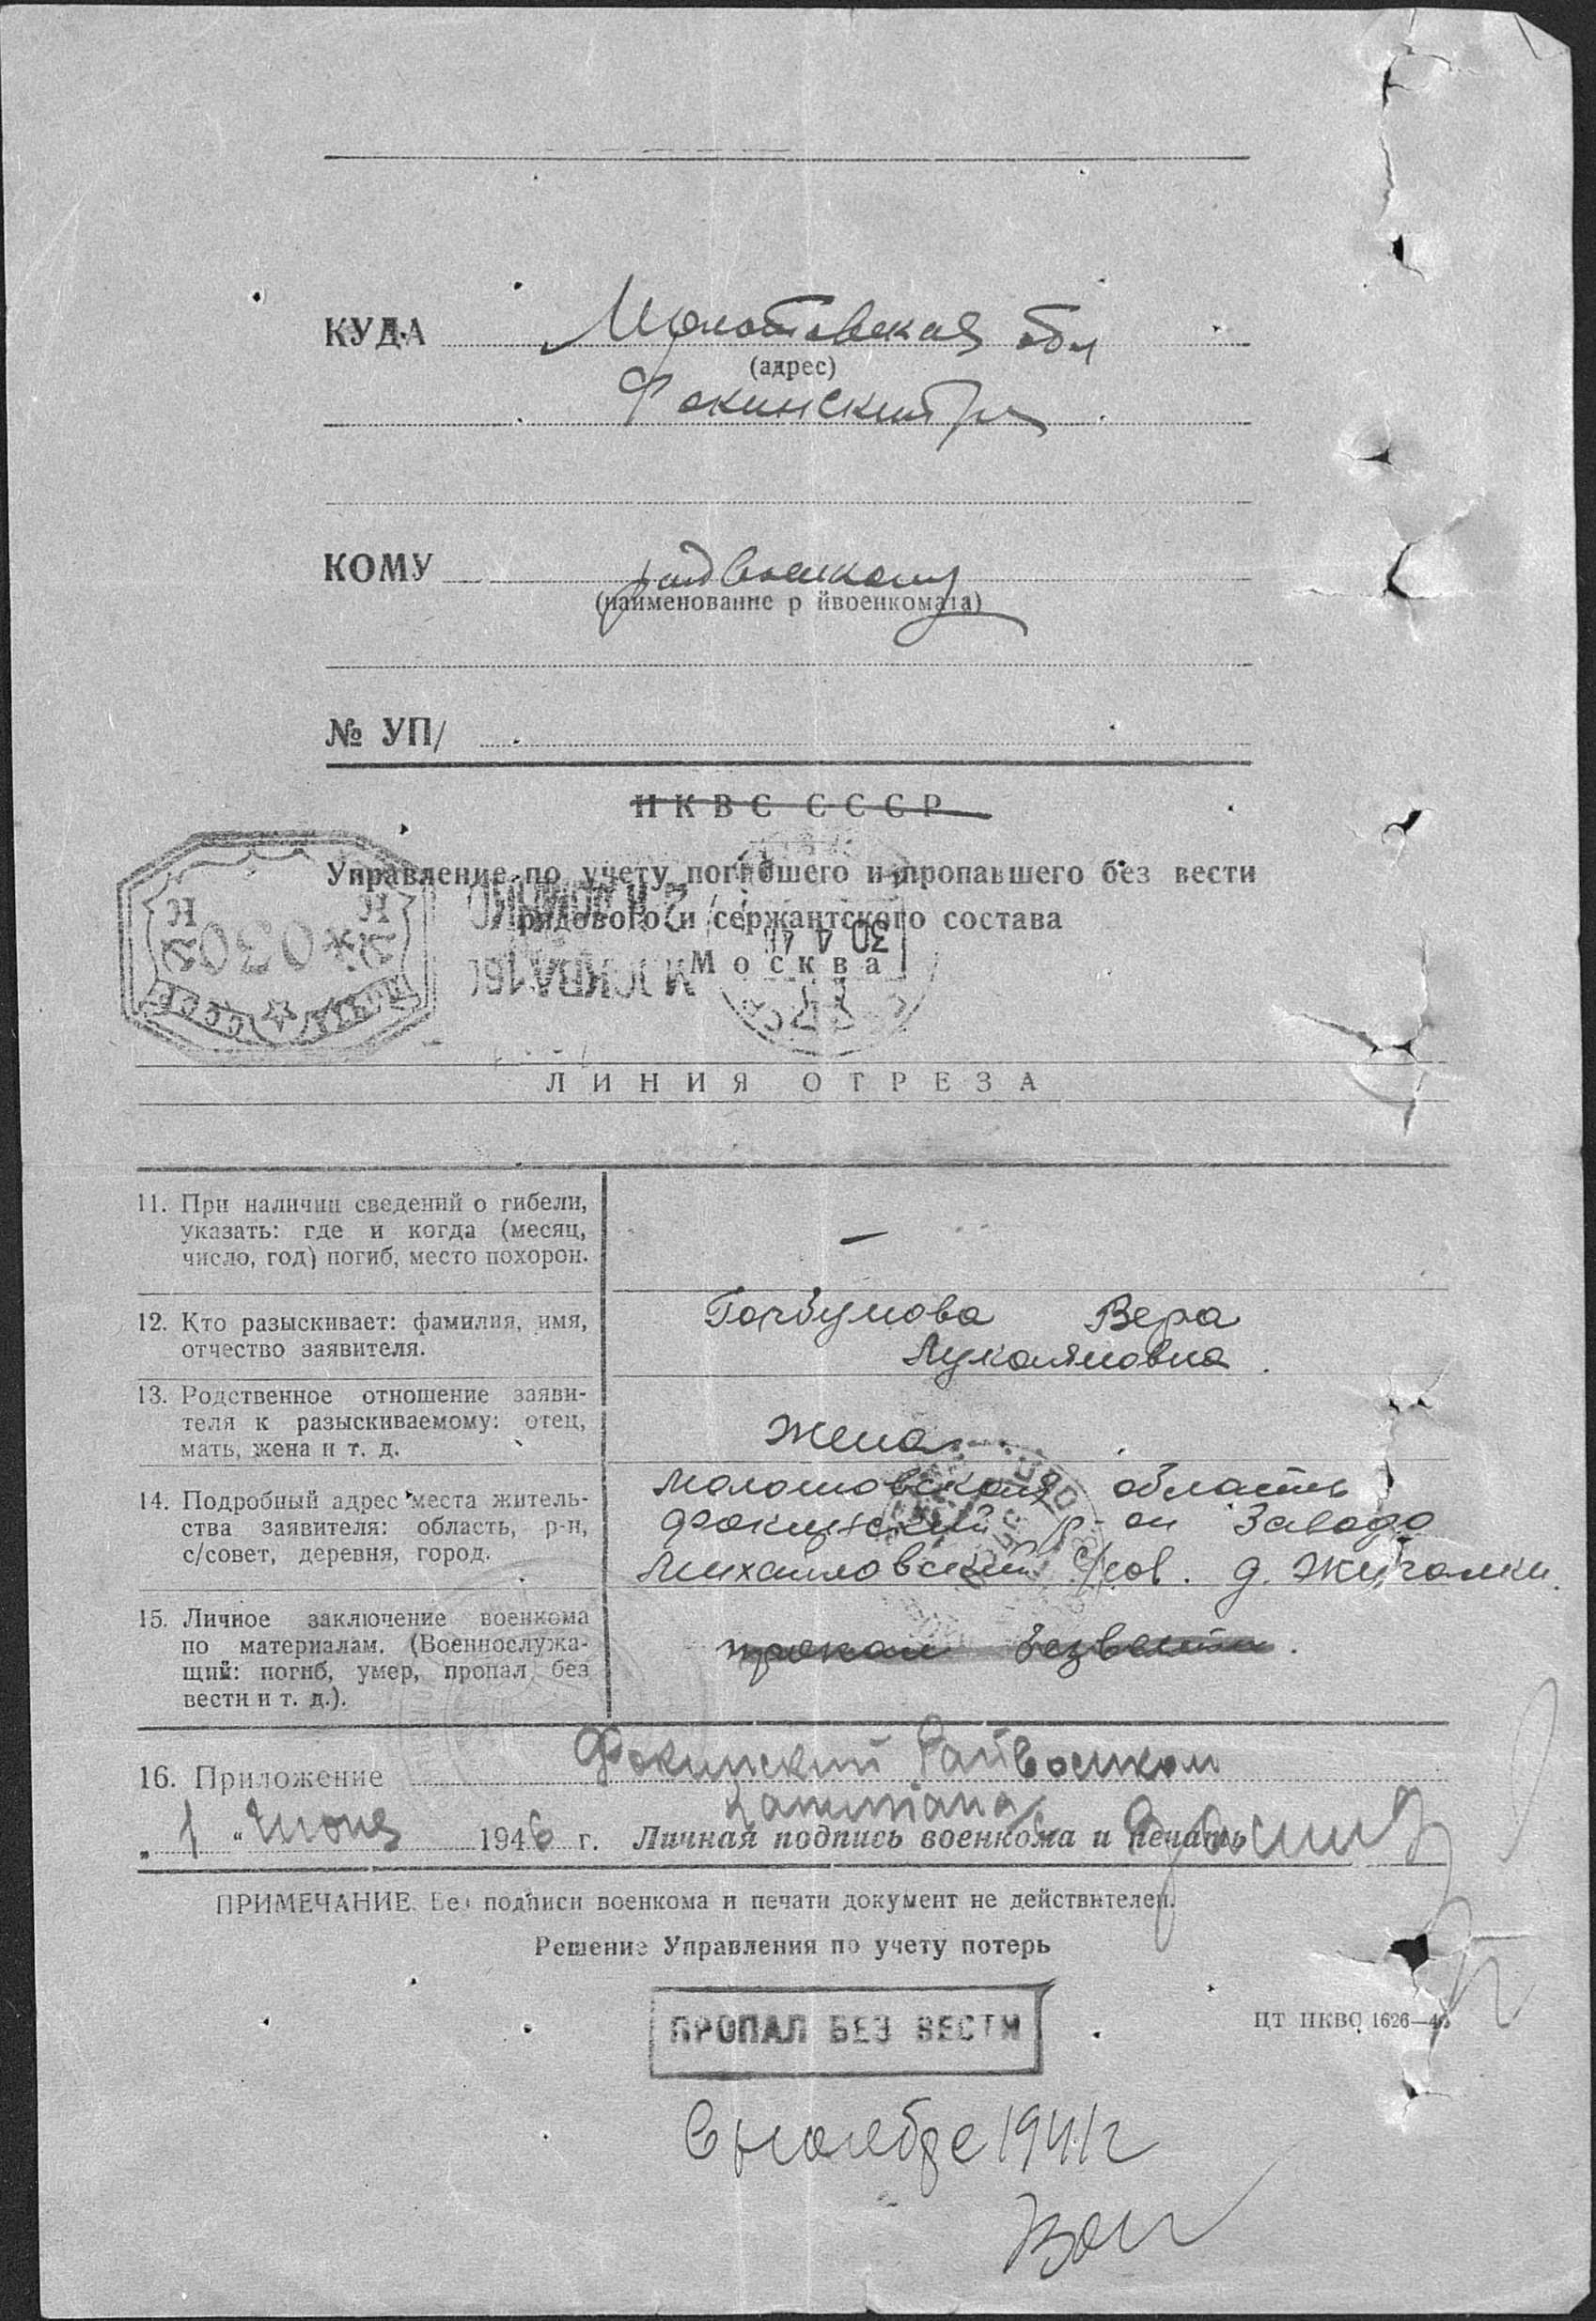 КУДА Молотовская обл
(адрес)
Фокинский р-н
КОМУ райвоенкому
(наименование р йвоенкомата)
№ УП/
НКВС СССР
Управление по учету погибшего и пропавшего без вести
рядового и сержантского состава
Москва
30 4
МОСКВА
ПОЧТА СССР
ЛИНИЯ ОТРЕЗА
11. При наличии сведений о гибели,
указать: где и когда (месяц,
число, год) погиб, место похорон.
—
12. Кто разыскивает: фамилия, имя,
отчество заявителя.
Горбунова Вера
Лукояновна.
13. Родственное отношение заяви-
теля к разыскиваемому: отец,
мать, жена и т. д.
Жена
14. Подробный адрес места житель-
ства заявителя: область, р-н,
с/совет, деревня, город.
Молотовская область
Фокинский р-он Завода
Михайловский с/сов. д. Жигалки.
15. Личное заключение военкома
по материалам. (Военнослужа-
щий: погиб, умер, пропал без
вести и т. д.).
пропал безвести.
16. Приложение Фокинский Райвоенком
Капитан
„ 1 " Июня 1946 г. Личная подпись военкома и печать
ПРИМЕЧАНИЕ. Без подписи военкома и печати документ не действителен.
Решение Управления по учету потерь
ПРОПАЛ БЕЗ ВЕСТИ
ЦТ НКВО 1626—4
в ноябре 1941 г